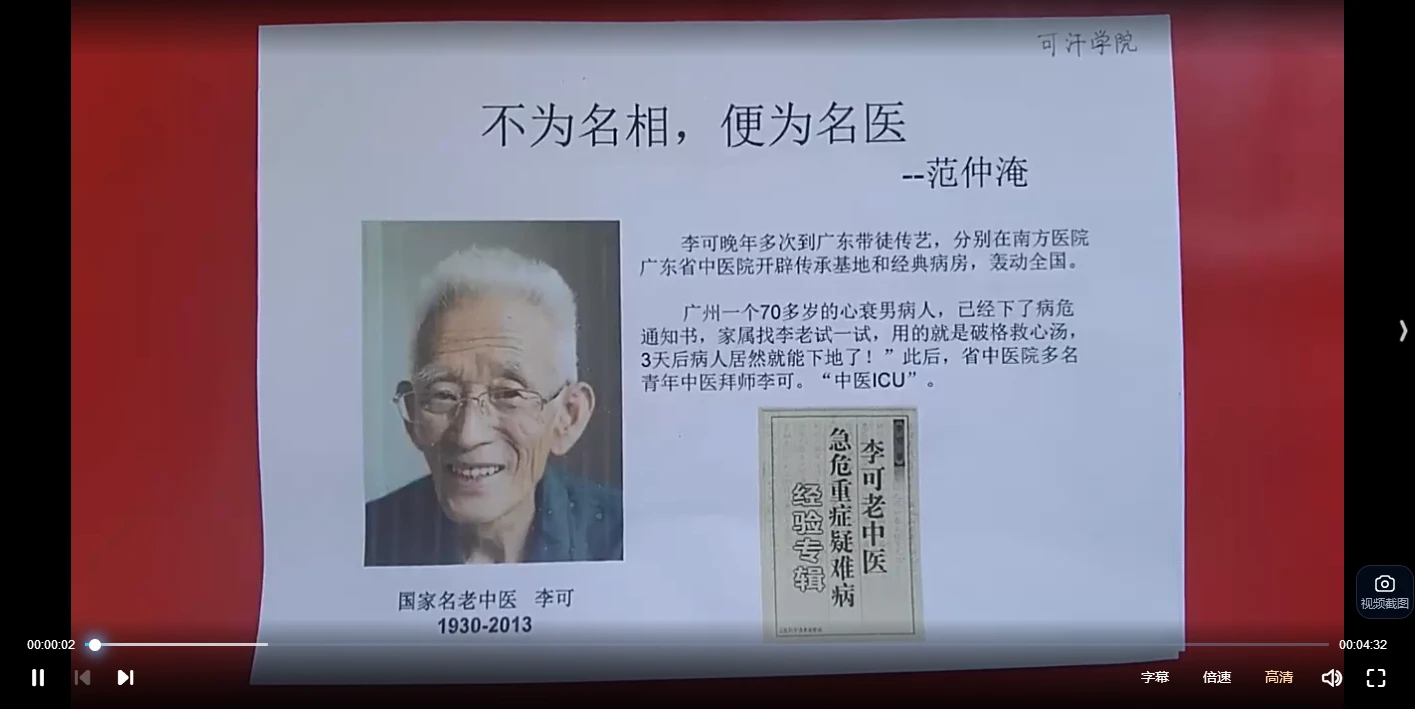 可汗学院
不为名相，便为名医
--范仲淹
李可晚年多次到广东带徒传艺，分别在南方医院
广东省中医院开辟传承基地和经典病房，轰动全国。
广州一个70多岁的心衰男病人，已经下了病危
通知书，家属找李老试一试，用的就是破格救心汤，
3天后病人居然就能下地了！”此后，省中医院多名
青年中医拜师李可。“中医ICU”。
李可老中医
急危重症疑难病
经验专辑
国家名老中医 李可
1930-2013
视频截图
00:00:02
00:04:32
字幕
倍速
高清